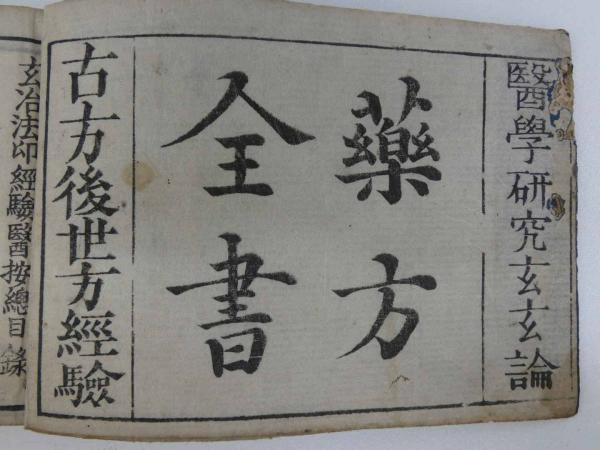 醫學研究玄玄論
藥方
全書
古方後世方經驗
玄冶法印經驗醫按總目錄